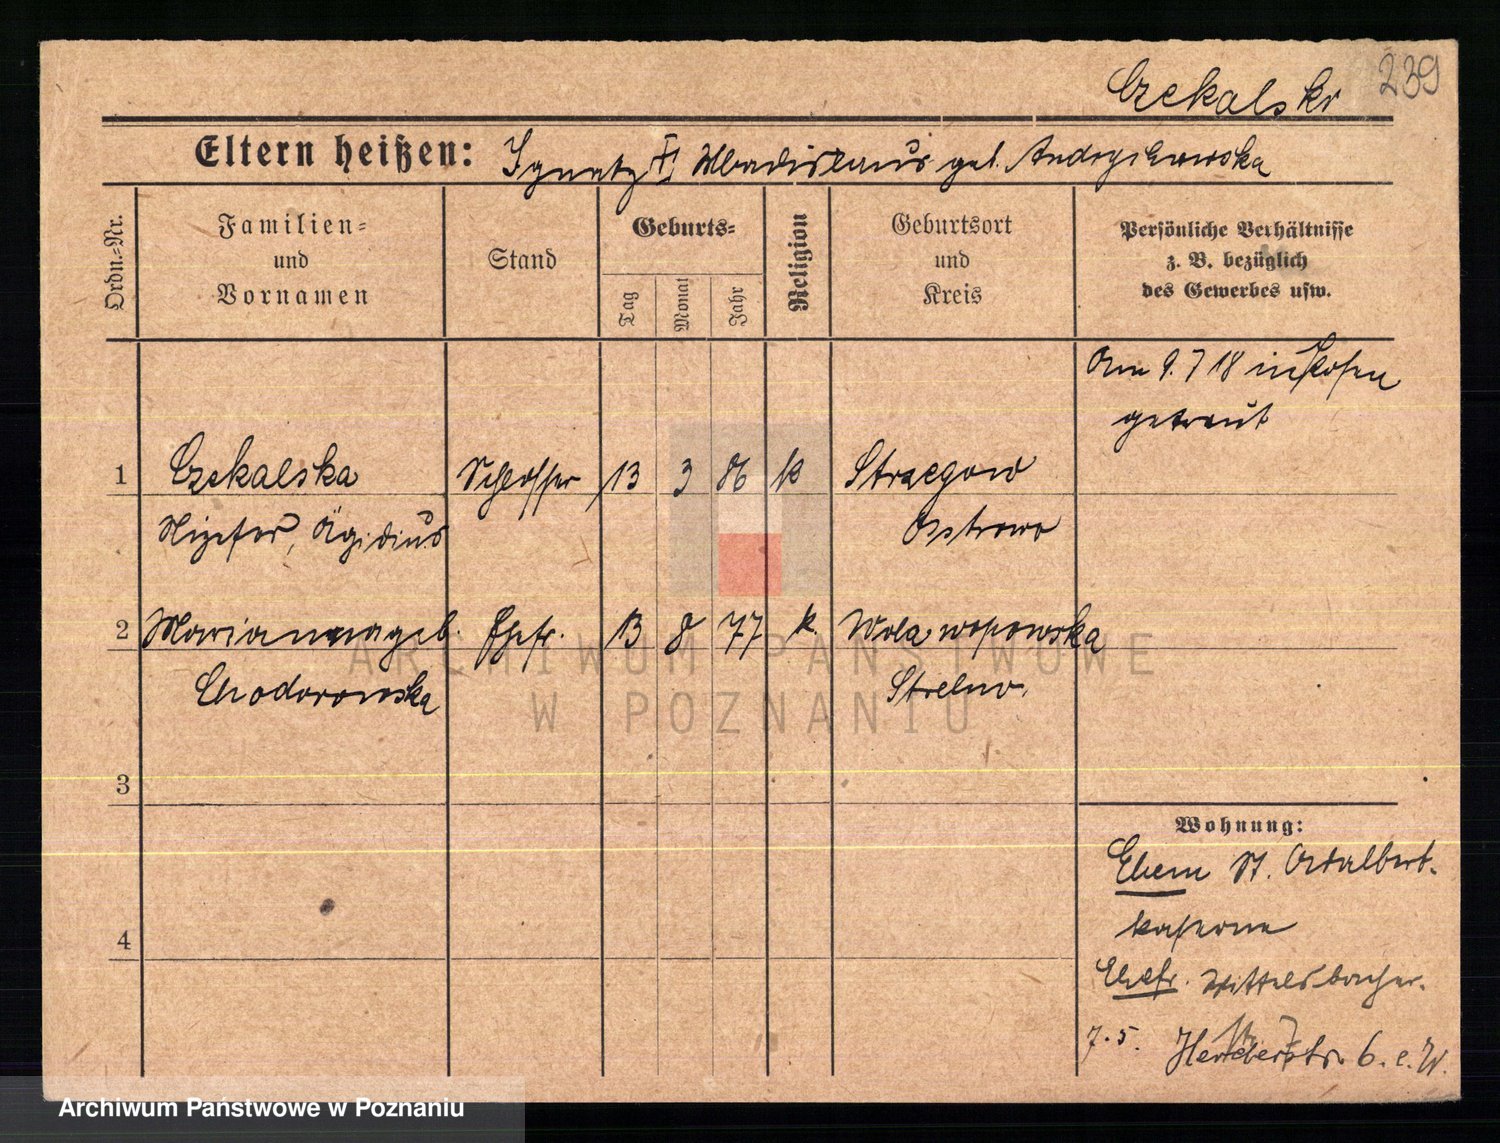 239
Czekalski
Eltern heißen: Ignatz u. Wladislaus geb. Andrzejewska
Ordn.-Nr.
Familien-
und
Vornamen
Stand
Geburts-
Tag
Monat
Jahr
Religion
Geburtsort
und
Kreis
Persönliche Verhältnisse
z. B. bezüglich
des Gewerbes usw.
Am 9.7 18 in Posen
getraut
1 Czekalska Schlosser 13 3 86 k
Nizefor, Ägidius Ostrowo
2 Marianna geb. Ehefr. 13 8 77 k.
Chodorowska Strelno.
3
4
Wohnung:
Ehem St. Adalbert-
kaserne
Ehefr. Wittelsbacher-
7.5. 6.
ARCHIWUM PAŃSTWOWE
W POZNANIU
Archiwum Państwowe w Poznaniu